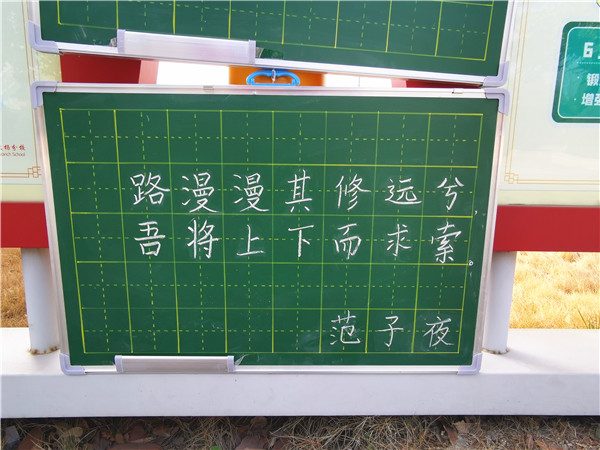 路漫漫其修远兮,
吾将上下而求索。
范子夜